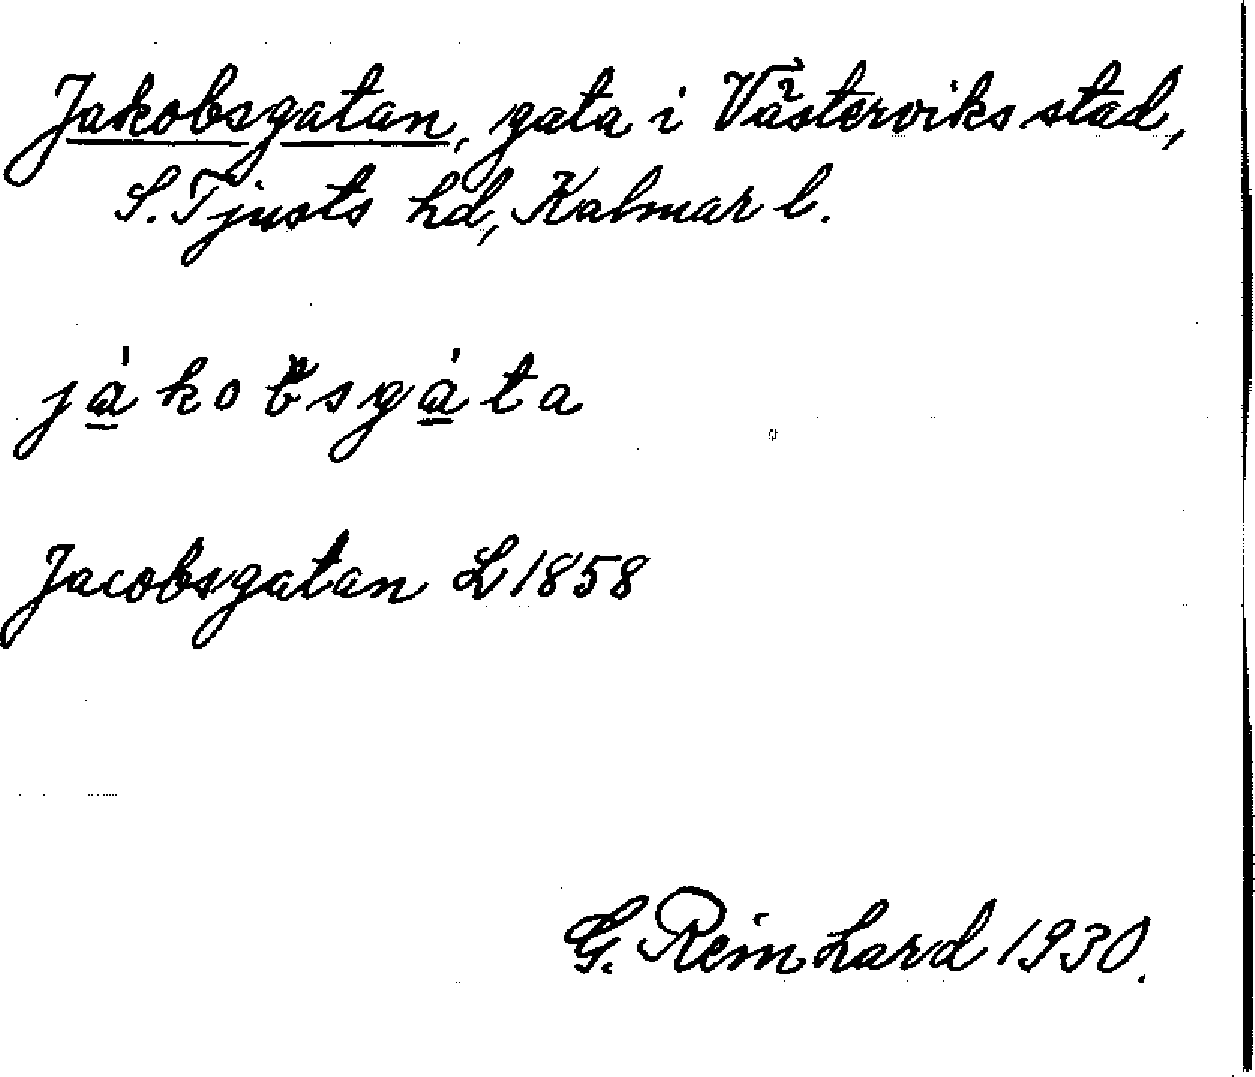 Jakobsgatan, gata i Västerviks stad,
S. Tjusts hd, Kalmar l.
Jacobsgatan L 1858
G. Reinhard 1930.